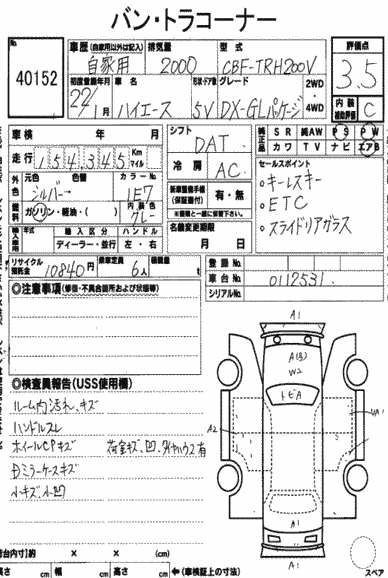 バン・トラコーナー
No.
40152
車歴(自家用以外は記入)
自家用
排気量
2000
型式
CBF-TRH200V
評価点
3.5
初度登録年月
22/1月
車名
ハイエース
形状・ドア数
5V
グレード
DX-GLパケージ
2WD
・
4WD
内装
補助評価
C
車検 年 月
シフト
DAT
純正品
SR 純AW PS PW
カワ TV ナビ エアB
走行 154,345 Km マイル
冷房
AC
セールスポイント
・キーレスキー
・ETC
・スライドリアガラス
外色
元色
シルバー
色替
カラーNo.
1E7
燃料
ガソリン・軽油・( )
内装色
グレー
新車整備手帳
(保証書付)
有・無
※書類と一緒に保管下さい。
輸入車用
年式
輸入区分
ディーラー・並行
ハンドル
左・右
名義変更期限
月 日
リサイクル預託金
10840円
乗車定員
6人
積載量
t
登録No.
車台No.
0112531
シリアルNo.
◎注意事項(修復・不具合箇所および状態等)
◎検査員報告(USS使用欄)
ルーム内汚れ、キズ
ハンドルスレ
ホイールCPキズ 荷室キズ、凹、タイヤハウス有
Dミラーケースキズ
小キズ、小凹
A1
A(B)
W2
トビA
A2
UA1
A1
A1
荷台内寸)約 × × (cm)
長さ cm 幅 cm 高さ cm ←(車検証上の寸法)
スペア